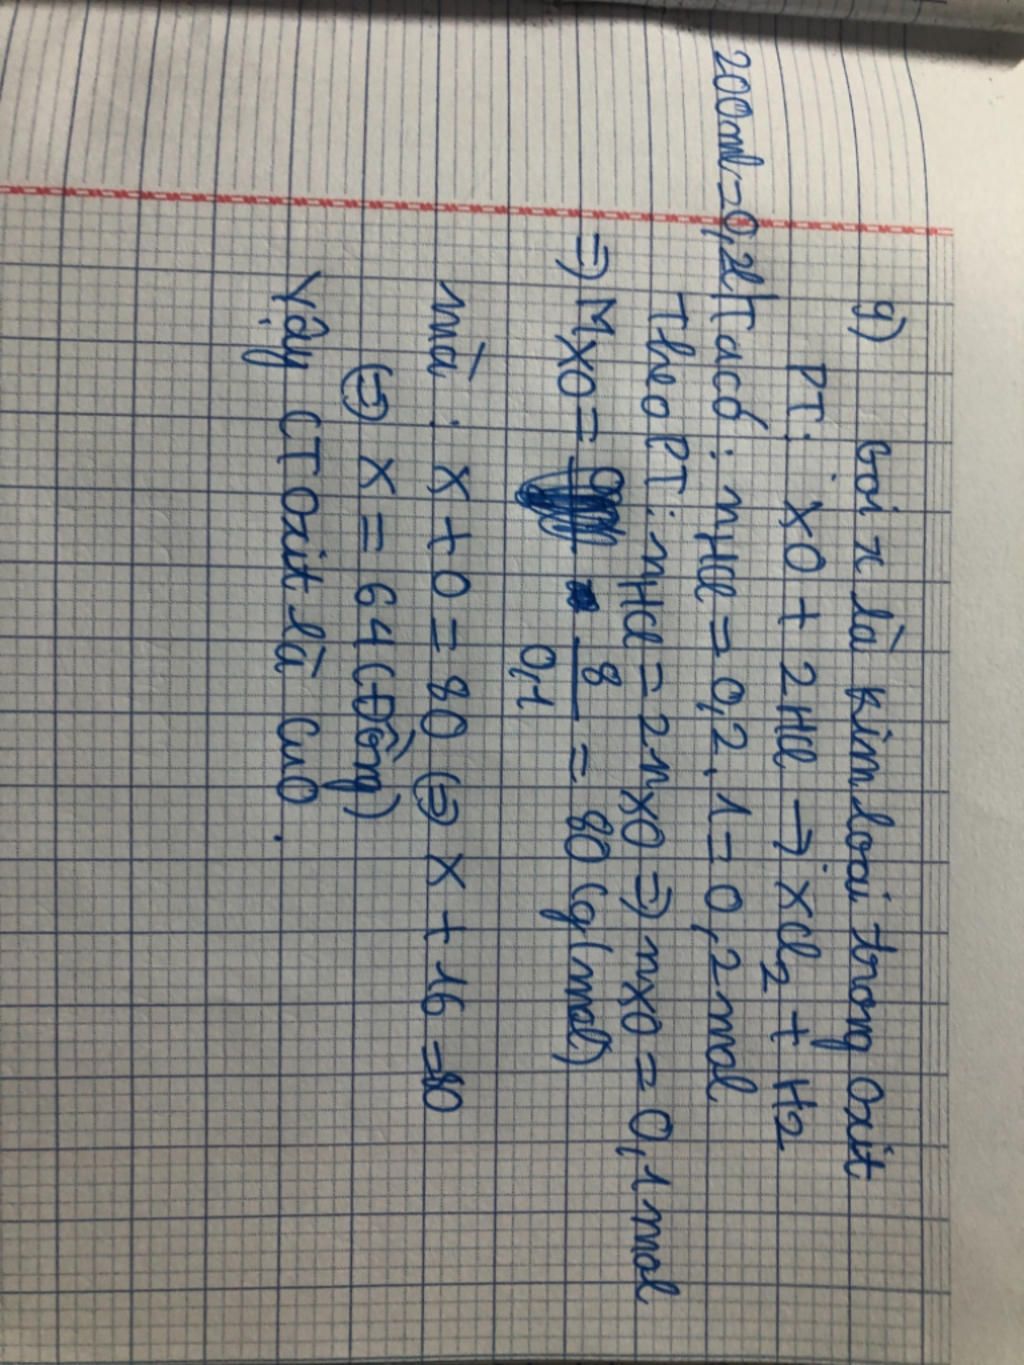 9) Gọi x là kim loại trong oxit
PT: XO + 2HCl → XCl2 + H2
200ml = 0,2l Ta có: nHCl = 0,2.1 = 0,2 mol
Theo PT: nHCl = 2nXO => nXO = 0,1 mol
=> MXO = 8/0,1 = 80 (g/mol)
mà: X + O = 80 (=) X + 16 = 80
(=) X = 64 (Đồng)
Vậy CT oxit là CuO.